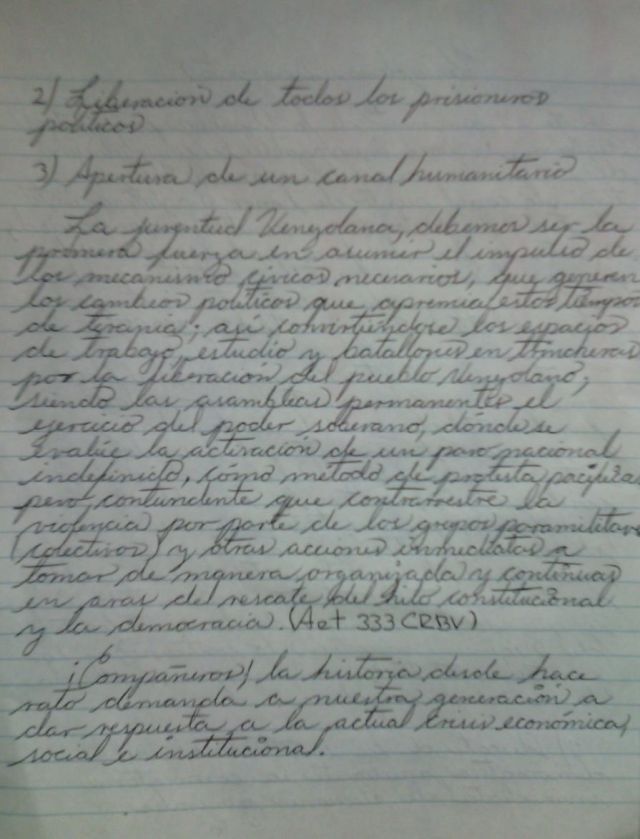 2) Liberación de todos los prisioneros
políticos
3) Apertura de un canal humanitario
La juventud Venezolana, debemos ser la
primera fuerza en asumir el impulso de
los mecanismo cívicos necesarios, que generen
los cambios políticos que apremia estos tiempos
de tirania; así convirtiéndose los espacios
de trabajo, estudio y batallones en trincheras
por la liberación del pueblo Venezolano;
siendo las asambleas permanentes el
ejercicio del poder soberano, dónde se
evalúe la activación de un paro nacional
indefinido, cómo método de protesta pacífica
pero contundente que contrarrestre la
violencia por parte de los grupos paramilitares
(colectivos) y otras acciones inmediatas a
tomar de manera organizada y continuas
en aras del rescate del hilo constitucional
y la democracia. (Art 333 CRBV)
¡Compañeros! la historia desde hace
rato demanda a nuestra generación a
dar respuesta a la actual crisis económica,
social e institucional.